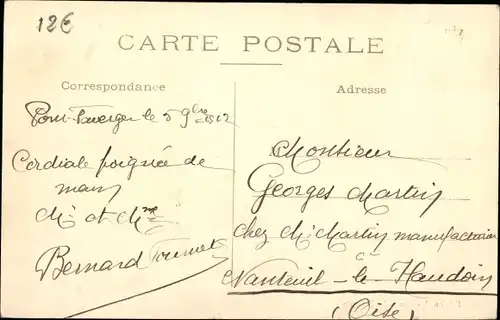 12€
CARTE POSTALE
Correspondance
Adresse
Pont Faverger le 5 9bre 1912
Cordiale poignée de
main
Mr et Mme
Bernard
Monsieur
Georges Martin
chez Mr Martin manufacturier
à
Nanteuil-le-Haudoin
(Oise)